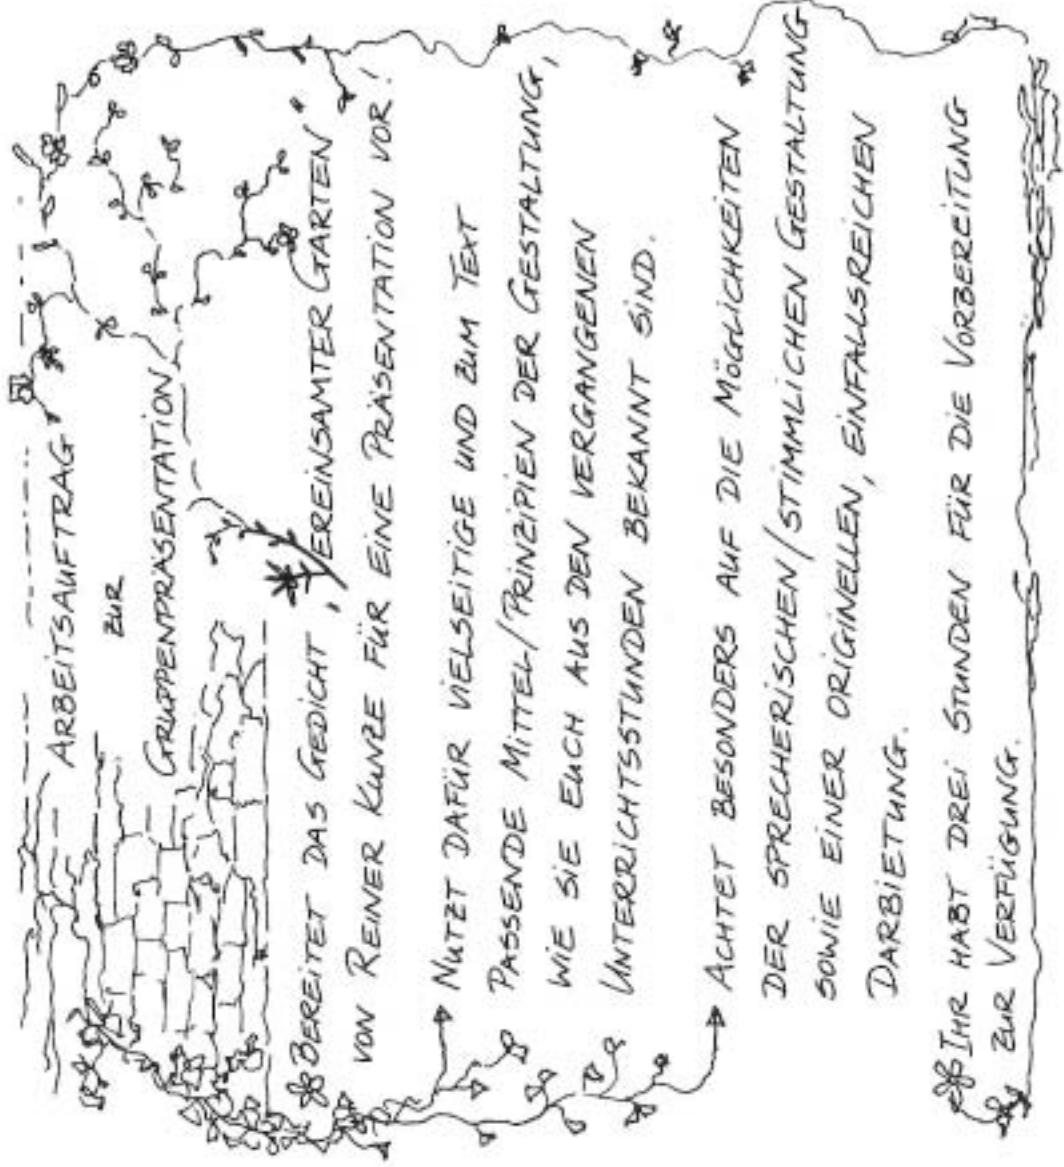 ARBEITSAUFTRAG
ZUR
GRUPPENPRÄSENTATION
BEREITET DAS GEDICHT , VEREINSAMTER GARTEN "
VON REINER KUNZE FÜR EINE PRÄSENTATION VOR!
NUTZT DAFÜR VIELSEITIGE UND ZUM TEXT
PASSENDE MITTEL/PRINZIPIEN DER GESTALTUNG,
WIE SIE EUCH AUS DEN VERGANGENEN
UNTERRICHTSSTUNDEN BEKANNT SIND.
ACHTET BESONDERS AUF DIE MÖGLICHKEITEN
DER SPRECHERISCHEN/STIMMLICHEN GESTALTUNG
SOWIE EINER ORIGINELLEN, EINFALLSREICHEN
DARBIETUNG.
IHR HABT DREI STUNDEN FÜR DIE VORBEREITUNG
ZUR VERFÜGUNG.